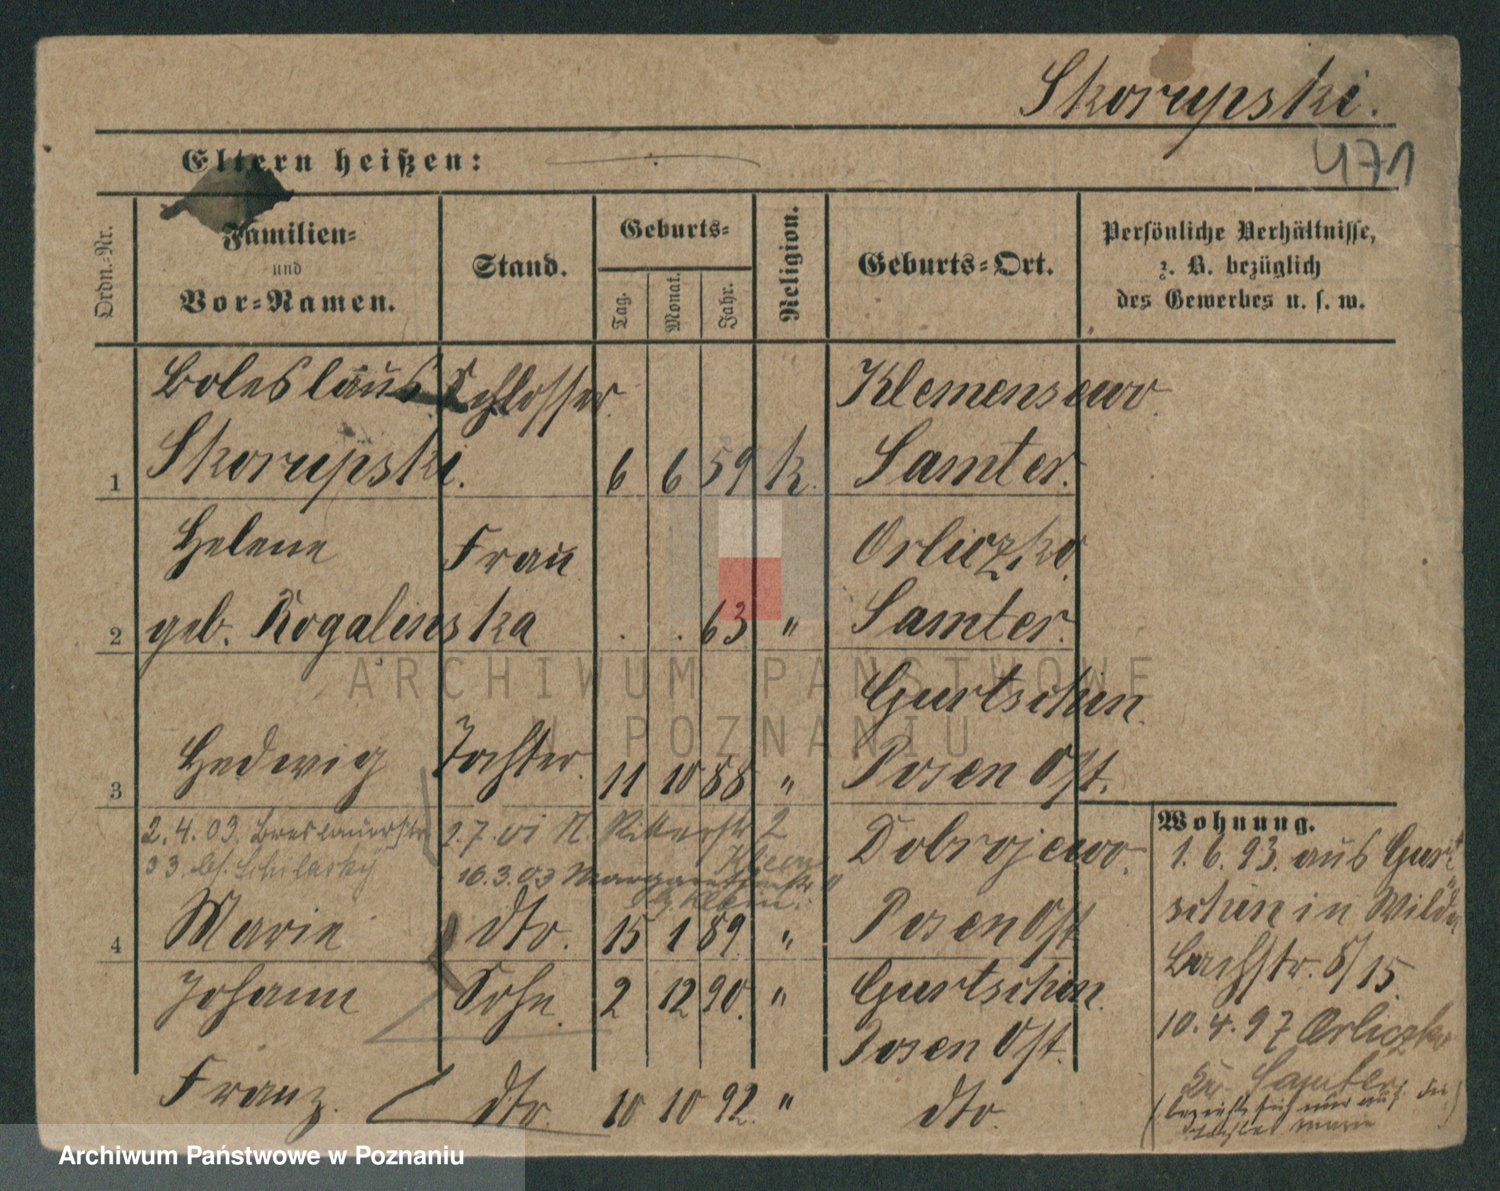 Skorupski.
471
Eltern heißen:
Ordn.-Nr.
Familien-
und
Vor-Namen.
Stand.
Geburts-
Tag.
Monat.
Jahr.
Religion.
Geburts-Ort.
Persönliche Verhältnisse,
z. B. bezüglich
des Gewerbes u. s. w.
Boleslaus Schlosser Klemensewo.
1 Skorupski. 6 6 59 k. Samter.
Helene Frau Orliczko
2 geb. Rogalinska . . 63 " Samter.
Gurtschin.
3 Hedwig Tochter. 11 10 88 " Posen Ost.
2.4.03. Breslauerstr. 2.7. Ritterstr 2 Dobrojewo.
33 bei 16.3.03 Margaretenstr.
Klein.
4 Marie dto. 15 1 89. " Posen Ost
Johann Sohn. 2 12 90. " Gurtschin.
Posen Ost.
Franz. dto. 10 10 92. " dto.
Wohnung.
1.6.93. aus Gurt
schin in Wilda
Bachstr. 8/15
10.4.97 Orliczko
Kr. Samter
(bezieht sich nur auf die
Tochter Marie)
ARCHIWUM PAŃSTWOWE
W POZNANIU
Archiwum Państwowe w Poznaniu